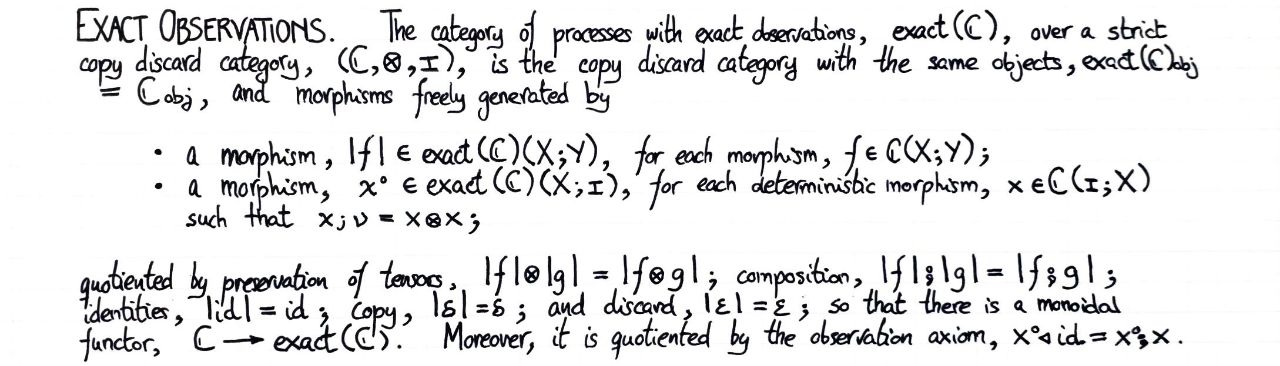 EXACT OBSERVATIONS. The category of processes with exact observations, exact(ℂ), over a strict
copy discard category, (ℂ,⊗,I), is the copy discard category with the same objects, exact(ℂ)obj
= ℂobj, and morphisms freely generated by
• a morphism, |f| ∈ exact(ℂ)(X;Y), for each morphism, f ∈ ℂ(X;Y);
• a morphism, x° ∈ exact(ℂ)(X;I), for each deterministic morphism, x ∈ ℂ(I;X)
such that x;ν = x⊗x;
quotiented by preservation of tensors, |f|⊗|g| = |f⊗g|; composition, |f|⨾|g| = |f⨾g|;
identities, |id| = id; copy, |δ| = δ; and discard, |ε| = ε; so that there is a monoidal
functor, ℂ → exact(ℂ). Moreover, it is quotiented by the observation axiom, x°◁id = x°⨾x.